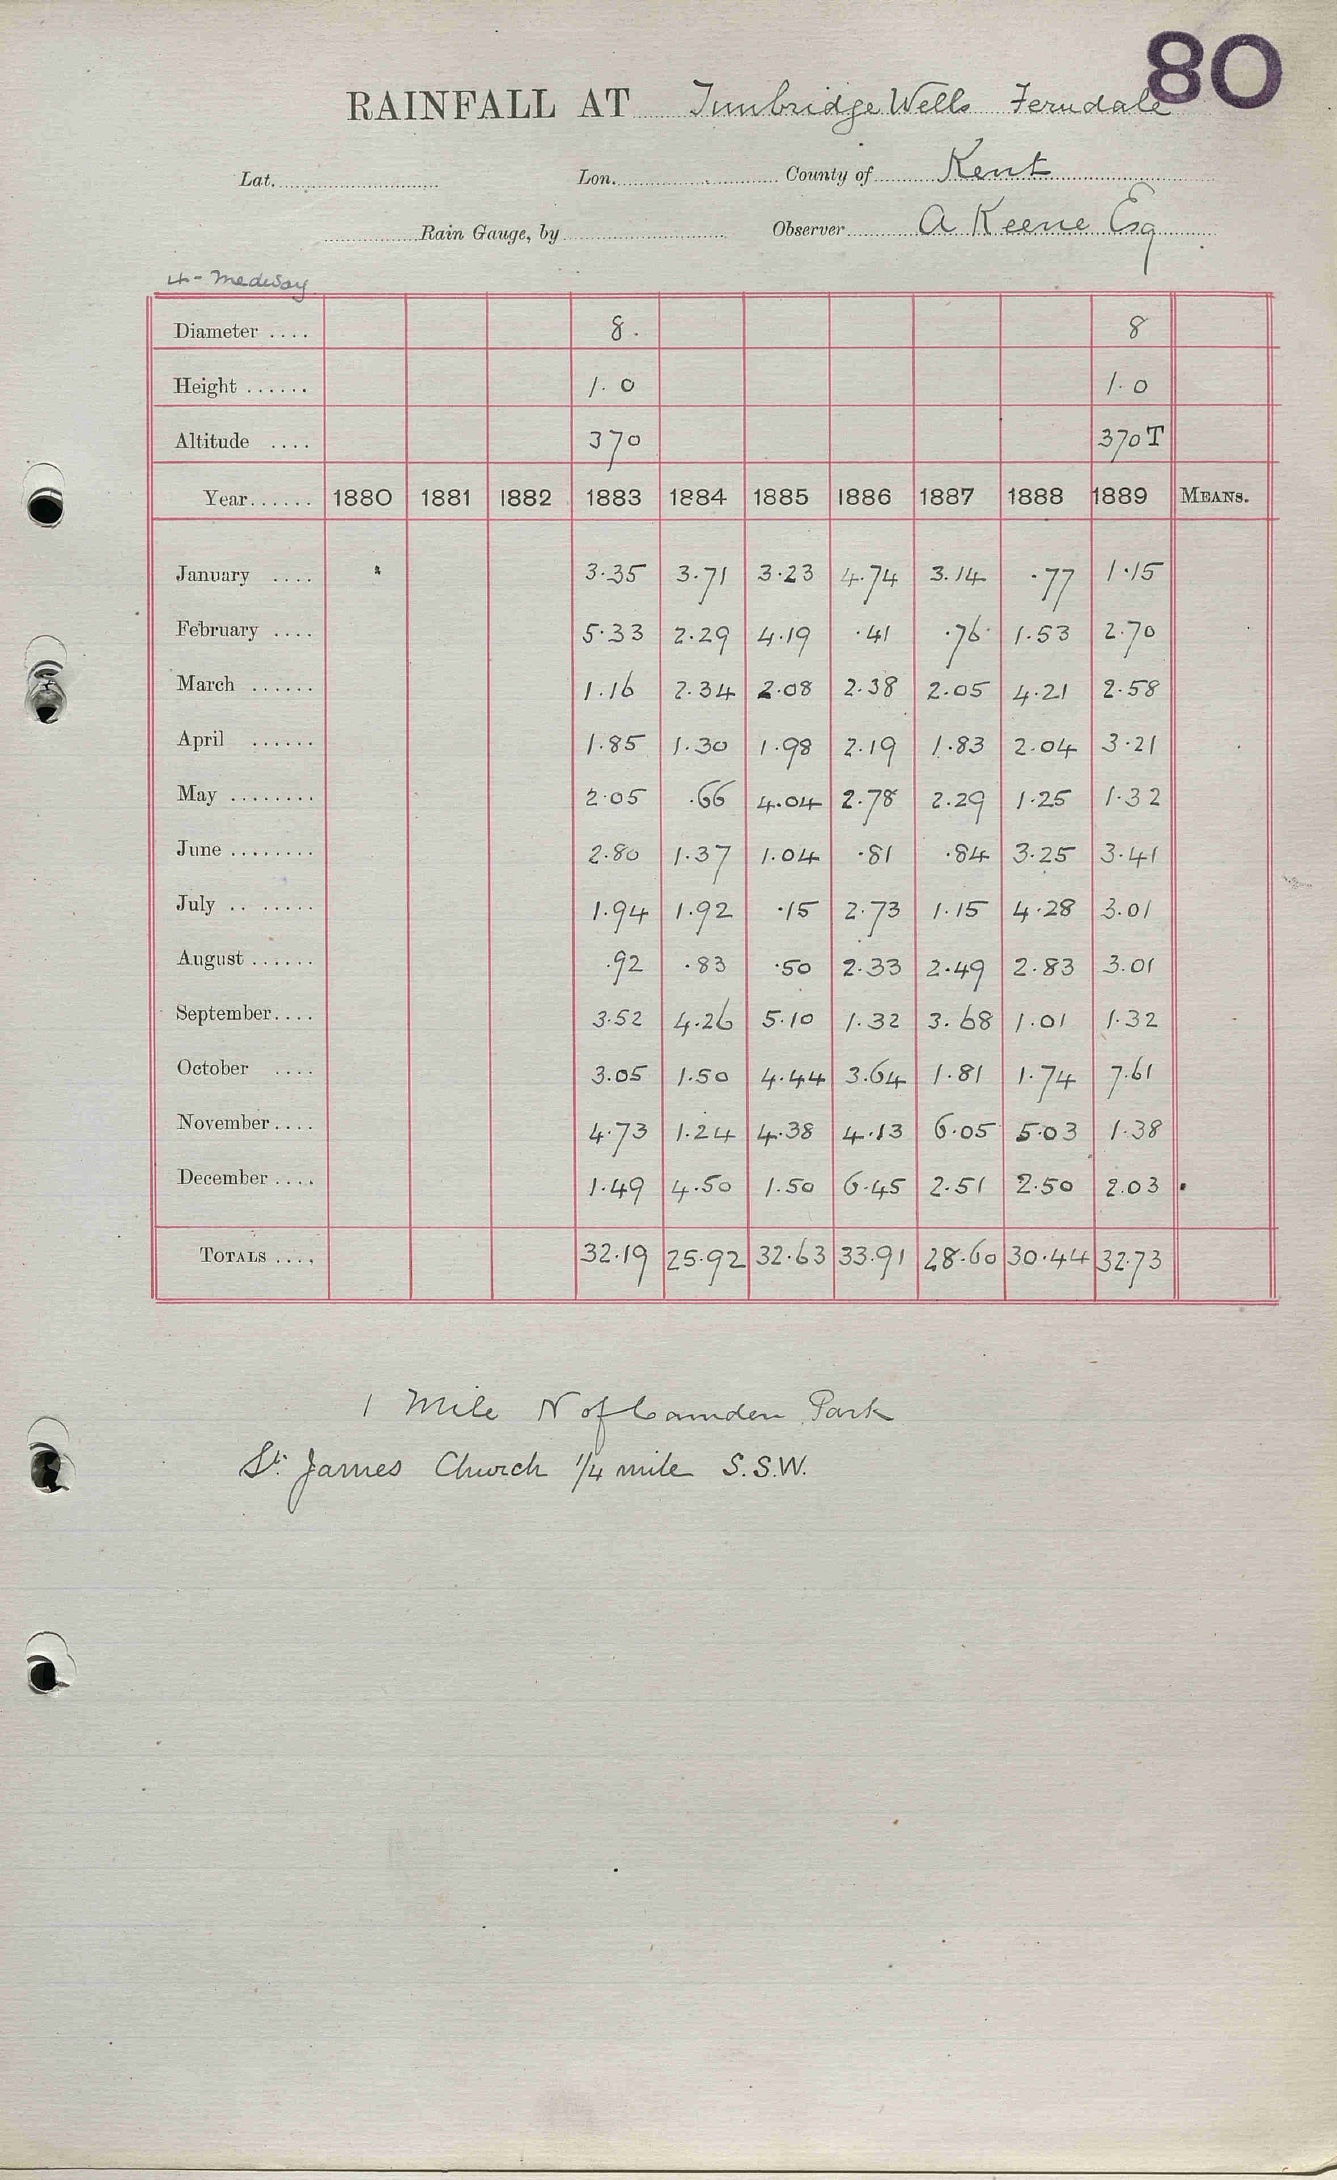 80
RAINFALL AT Tunbridge Wells Ferndale
Lat. Lon. County of Kent
Rain Gauge, by Observer A Keene Esq
4 - Medway
Diameter .... 8. 8
Height ...... 1.0 1.0
Altitude .... 370 370T
Year...... 1880 1881 1882 1883 1884 1885 1886 1887 1888 1889 MEANS.
January .... 3.35 3.71 3.23 4.74 3.14 .77 1.15
February .... 5.33 2.29 4.19 .41 .76 1.53 2.70
March ...... 1.16 2.34 2.08 2.38 2.05 4.21 2.58
April ...... 1.85 1.30 1.98 2.19 1.83 2.04 3.21
May ........ 2.05 .66 4.04 2.78 2.29 1.25 1.32
June ........ 2.80 1.37 1.04 .81 .84 3.25 3.41
July .. ..... 1.94 1.92 .15 2.73 1.15 4.28 3.01
August ...... .92 .83 .50 2.33 2.49 2.83 3.01
September.... 3.52 4.26 5.10 1.32 3.68 1.01 1.32
October .... 3.05 1.50 4.44 3.64 1.81 1.74 7.61
November.... 4.73 1.24 4.38 4.13 6.05 5.03 1.38
December .... 1.49 4.50 1.50 6.45 2.51 2.50 2.03
TOTALS .... 32.19 25.92 32.63 33.91 28.60 30.44 32.73
1 Mile N of Camden Park
St. James Church 1/4 mile S.S.W.